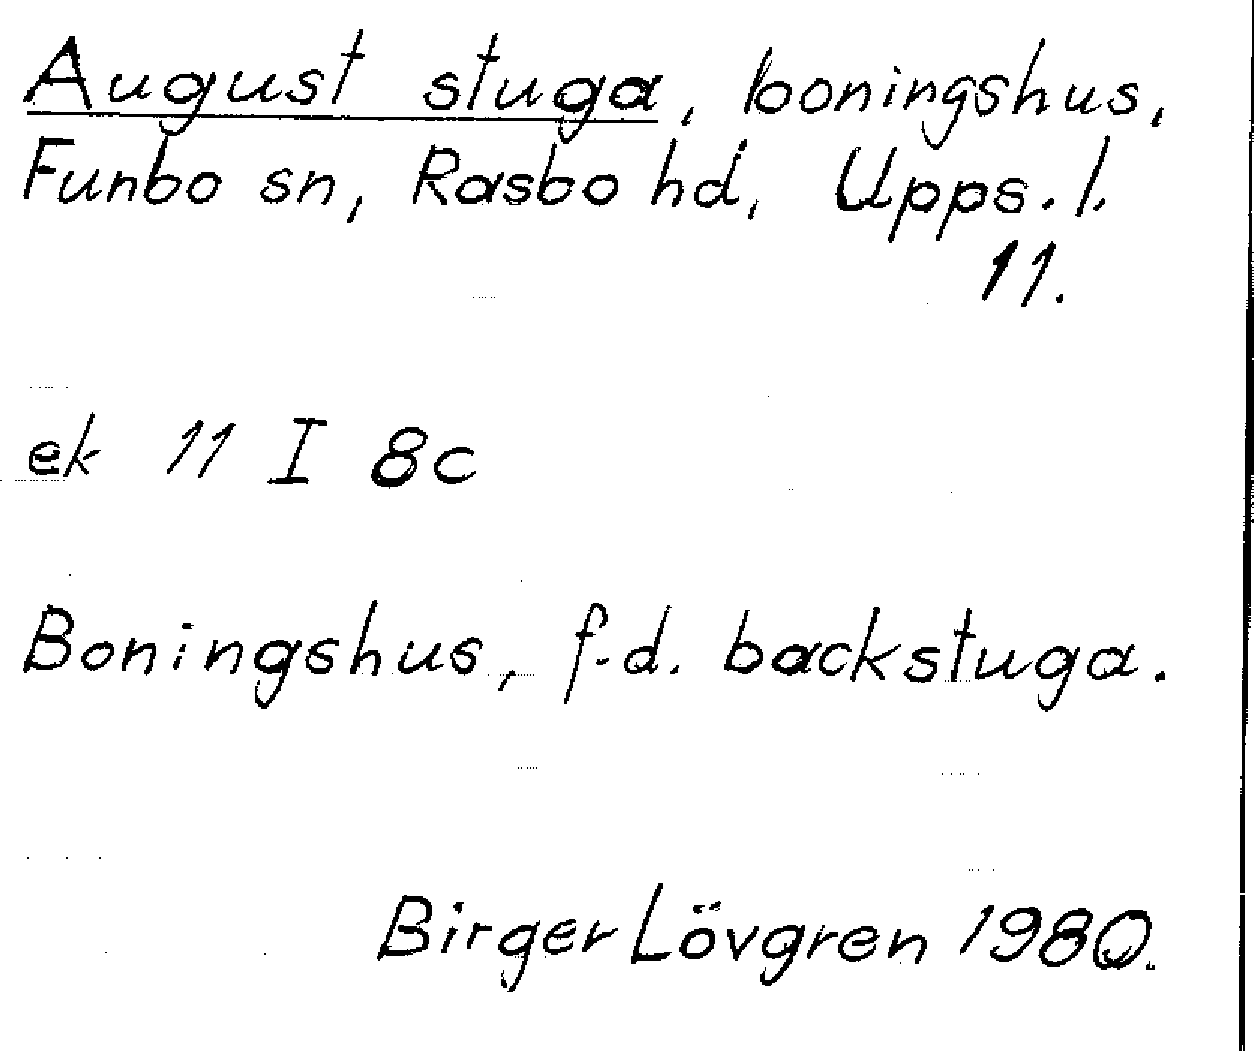 August stuga, boningshus,
Funbo sn, Rasbo hd, Upps. l.
11.
ek 11 I 8c
Boningshus, f.d. backstuga.
Birger Lövgren 1980.